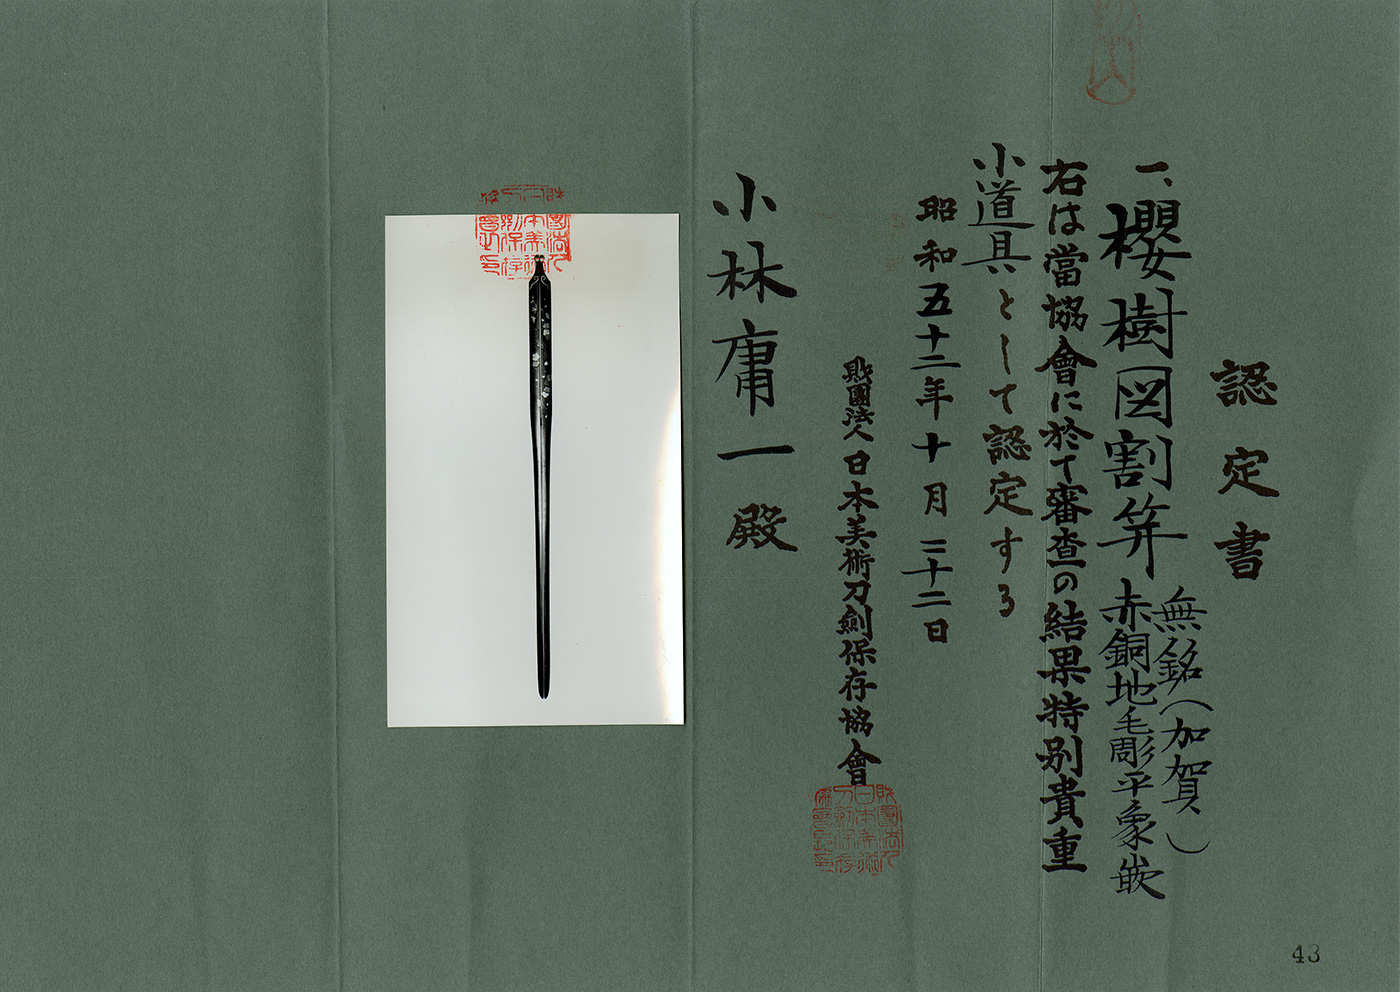 認定書
一、櫻樹図割笄 無銘(加賀)
赤銅地毛彫平象嵌
右は當協會に於て審査の結果特別貴重
小道具として認定する
昭和五十二年十月二十二日
財團法人日本美術刀劍保存協會
小林庸一殿
43